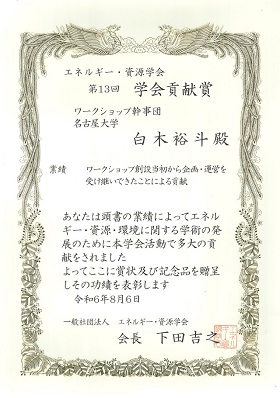 エネルギー・資源学会
第13回 学会貢献賞
ワークショップ幹事団
名古屋大学
白木裕斗殿
業績 ワークショップ創設当初から企画・運営を
受け継いできたことによる貢献
あなたは頭書の業績によってエネル
ギー・資源・環境に関する学術の発
展のために本学会活動で多大の貢
献をされました
よってここに賞状及び記念品を贈呈
しその功績を表彰します
令和6年8月6日
一般社団法人 エネルギー・資源学会
会長 下田吉之